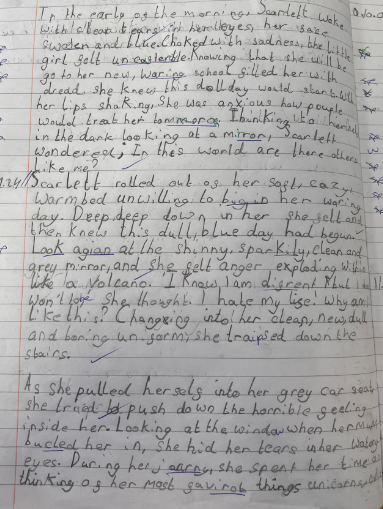 In the early og the morning, Scarlett woke
with clear tears in her eyes, her sace
swolen and blue. Choked with sadness, the little
girl selt un casterble. Knowing that she will be
go to her new, waring school silled her with
dread she knew this dull day would start. With
her lips shaking, She was anxious how pouple
would treat her tommorog.
in the dark looking at a mirror, Scarlett
wondered; In thes world are there others
like me?
1.24 Scarlett rolled out og her sost, cozy,
Warm bed unwilling to bigin her waring
day. Deep, deep down in her she selt and
then knew this dull, blue day had begun.
Look agian at the shinny, sparkily, clean and
grey mirror, and she selt anger exploding withi
like a volcano. I know, I am digrent that I
won't she thought. I hate my lise! Why am
like this? Changing into her clean, new, dull
and boring un sorm, she traipsed down the
stairs.
As she pulled herselg into her grey car seat
she tried to push down the horrible geeling
inside her. Looking at the window when her mu
bucled her in, She hid her tears in her watery
eyes. During her joarny, she spent her time
thinking og her most gavirot things unicorns,